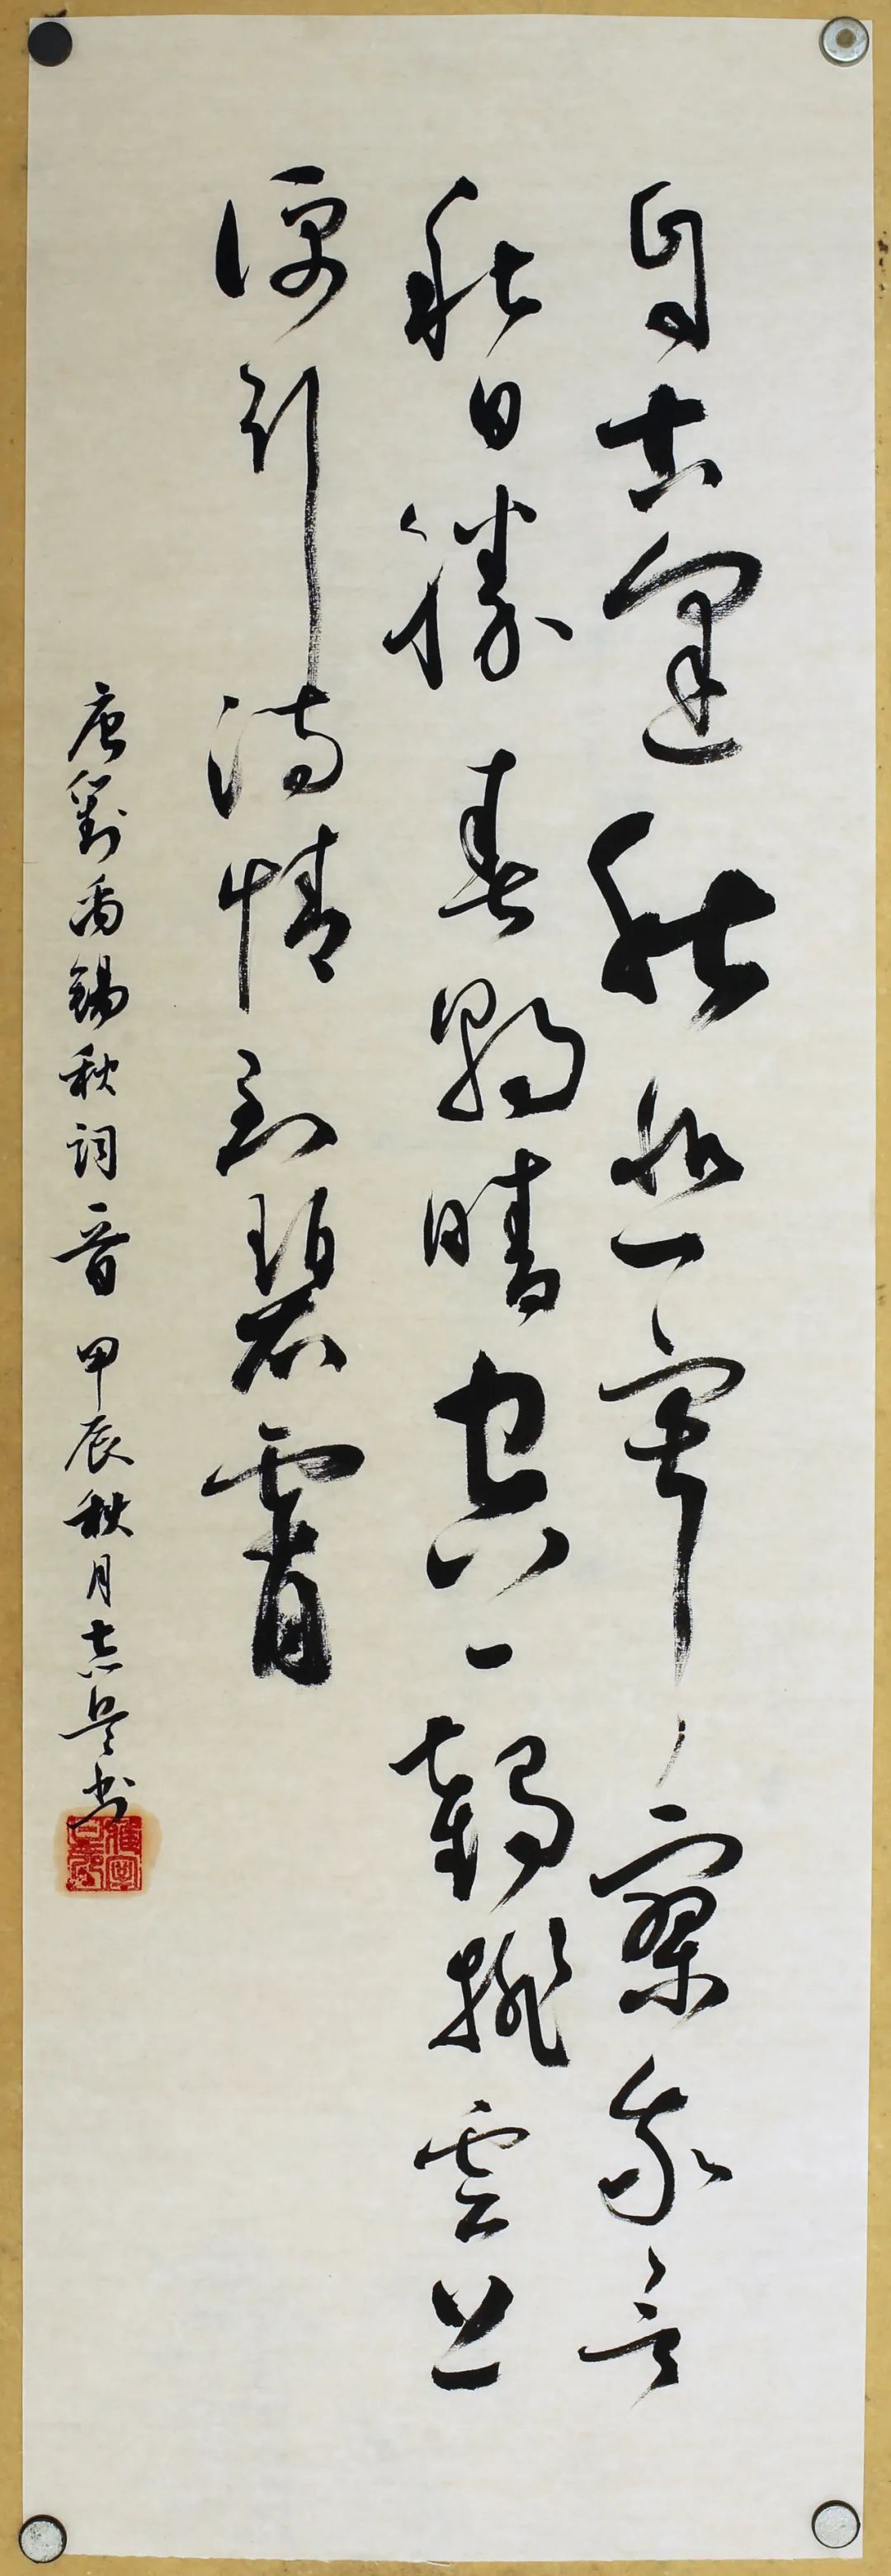 自古逢秋悲寂寥我言
秋日勝春朝晴空一鶴排雲上
便引詩情到碧霄
唐劉禹錫秋詞一首 甲辰秋月志呈书